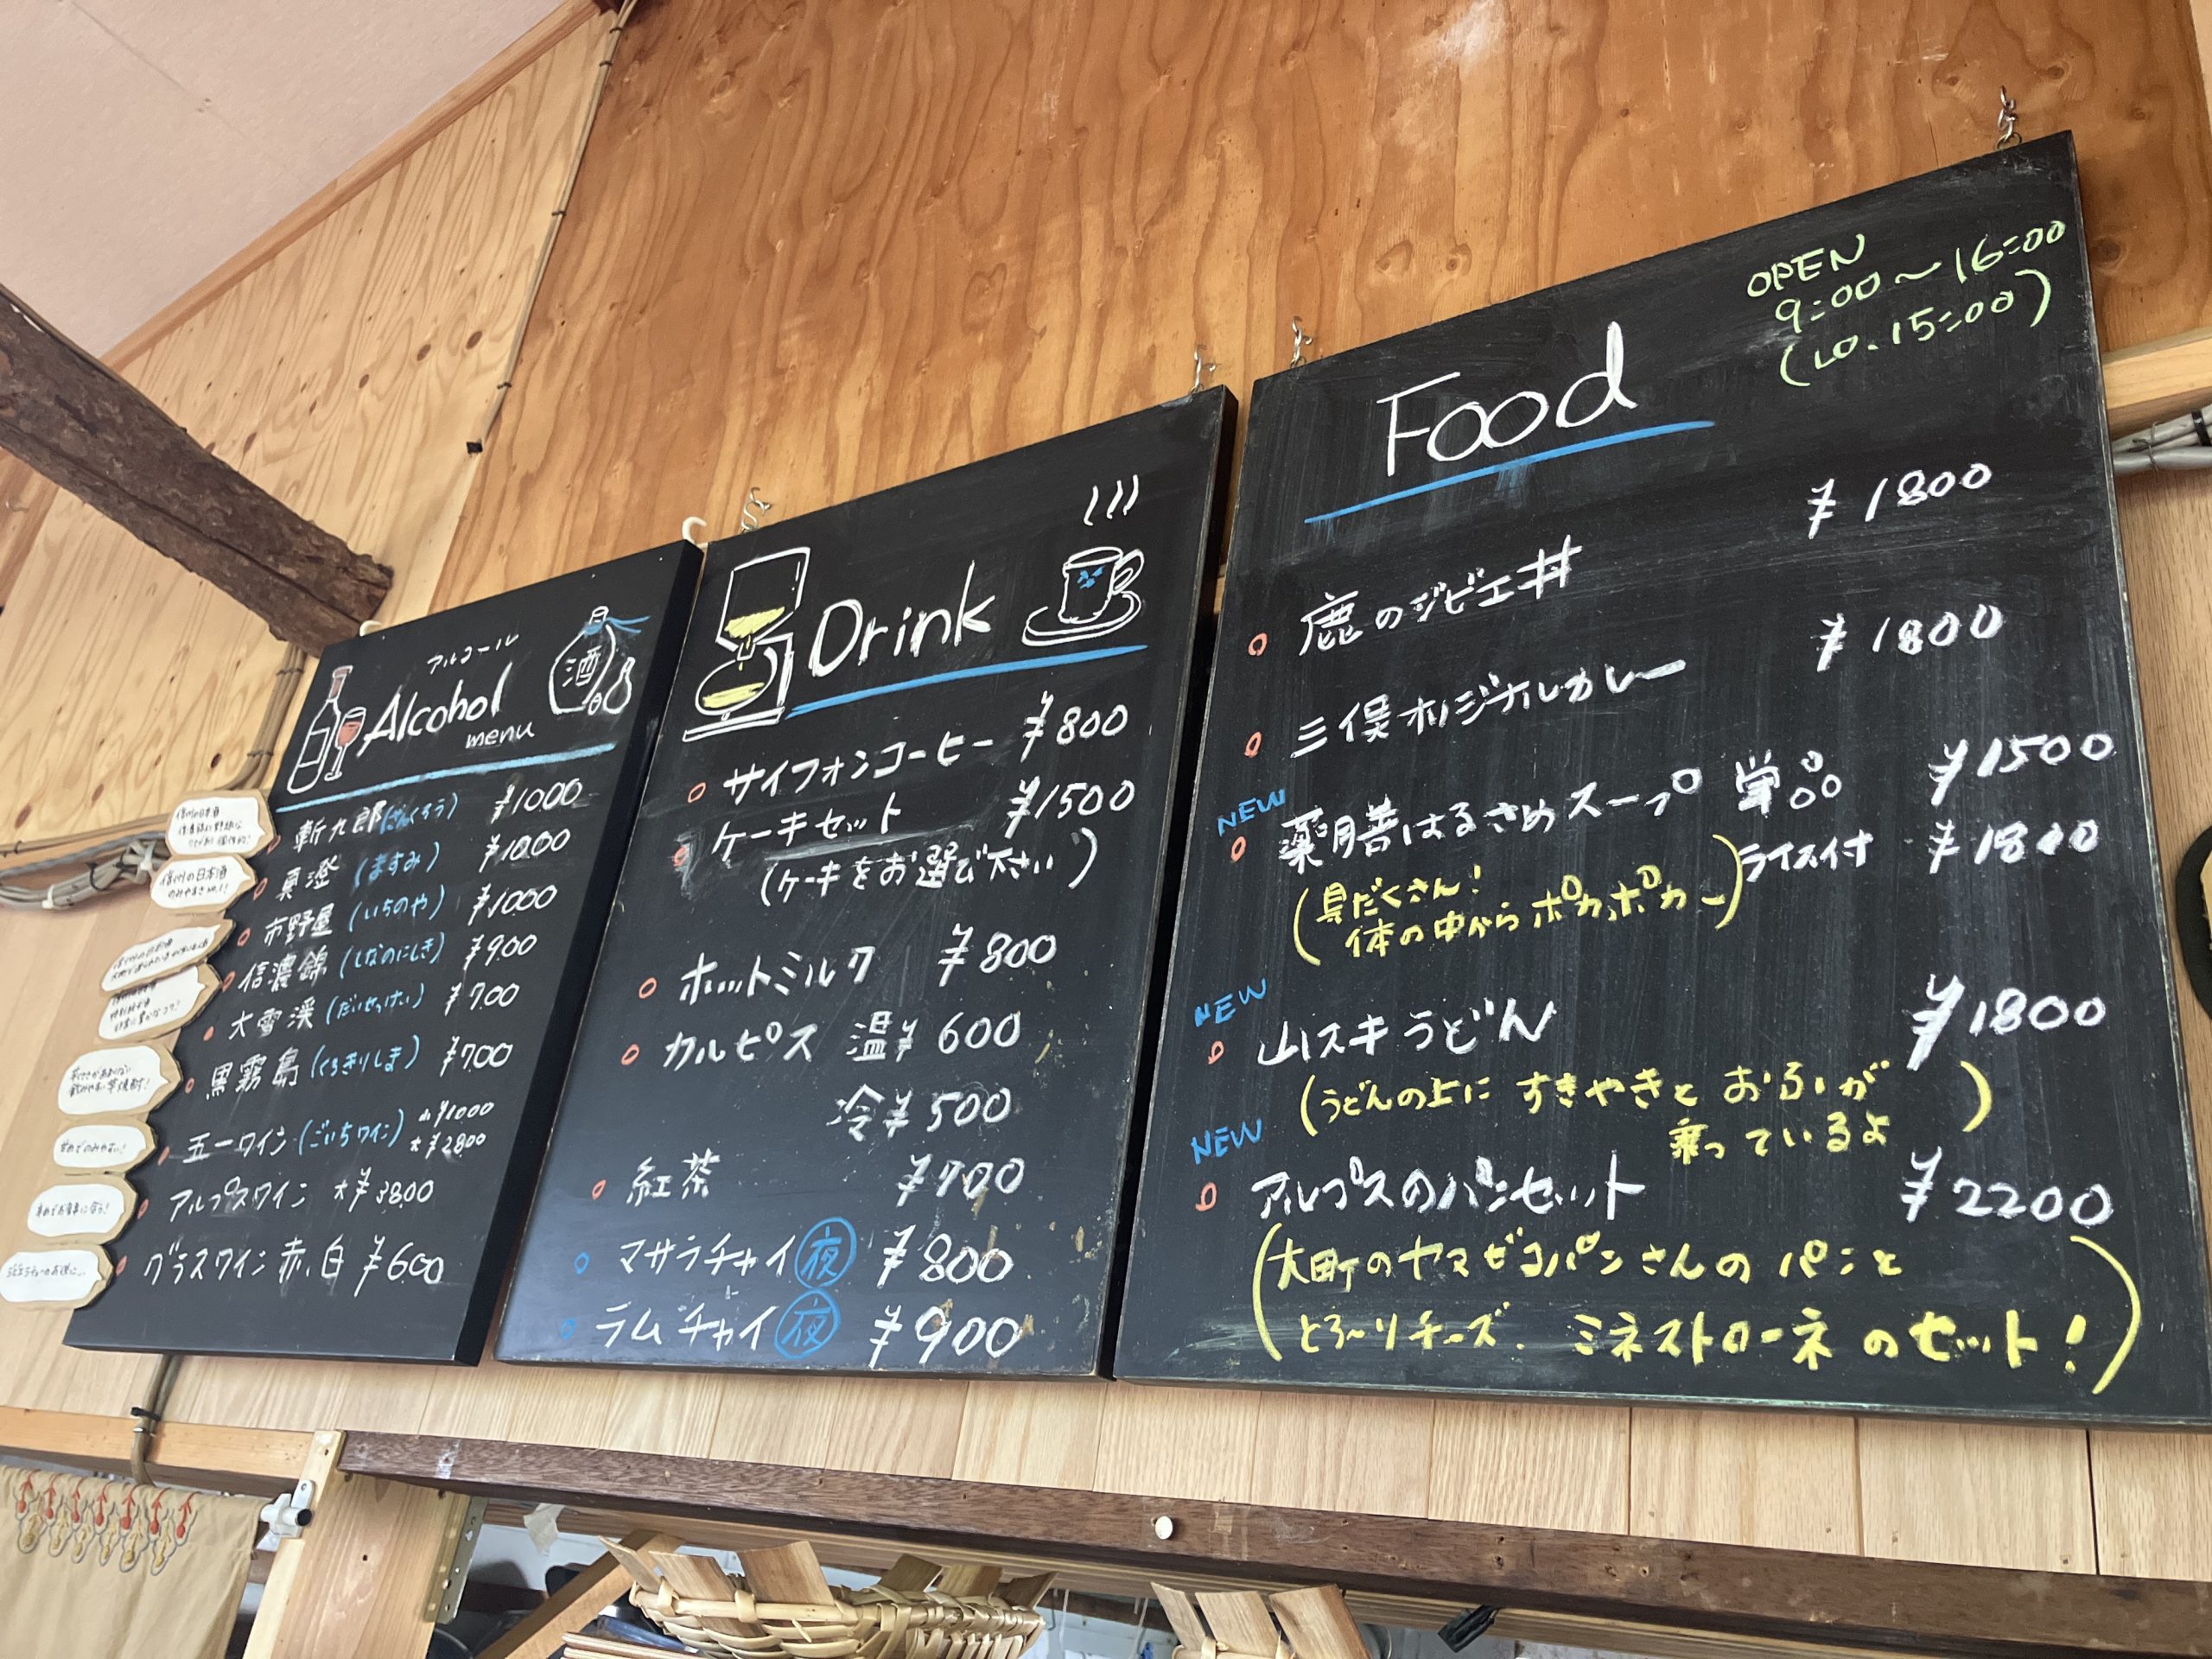 アルコール
Alcohol
menu
酒
斬九郎(ざんくろう) ¥1000
真澄(ますみ) ¥1000
市野屋(いちのや) ¥1000
信濃錦(しなのにしき) ¥900
大雪渓(だいせっけい) ¥700
黒霧島(くろきりしま) ¥700
五一ワイン(ごいちワイン) 小¥1000
大¥2800
アルプスワイン 大¥3800
グラスワイン 赤、白 ¥600
信州の日本酒
のみやすさNo.1!
Drink
サイフォンコーヒー ¥800
ケーキセット ¥1500
(ケーキをお選び下さい)
ホットミルク ¥800
カルピス 温¥600
冷¥500
紅茶 ¥700
マサラチャイ 夜 ¥800
ラムチャイ 夜 ¥900
OPEN
9:00~16:00
(LO.15:00)
Food
鹿のジビエ丼 ¥1800
三俣オリジナルカレー ¥1800
NEW
薬膳はるさめスープ 単品 ¥1500
ライス付 ¥1800
(具だくさん!
体の中からポカポカー)
NEW
山スキうどん ¥1800
(うどんの上に すきやきと おふが
乗っているよ)
NEW
アルプスのパンセット ¥2200
(大町のヤマビコパンさんのパンと
とろ〜りチーズ、ミネストローネのセット!)